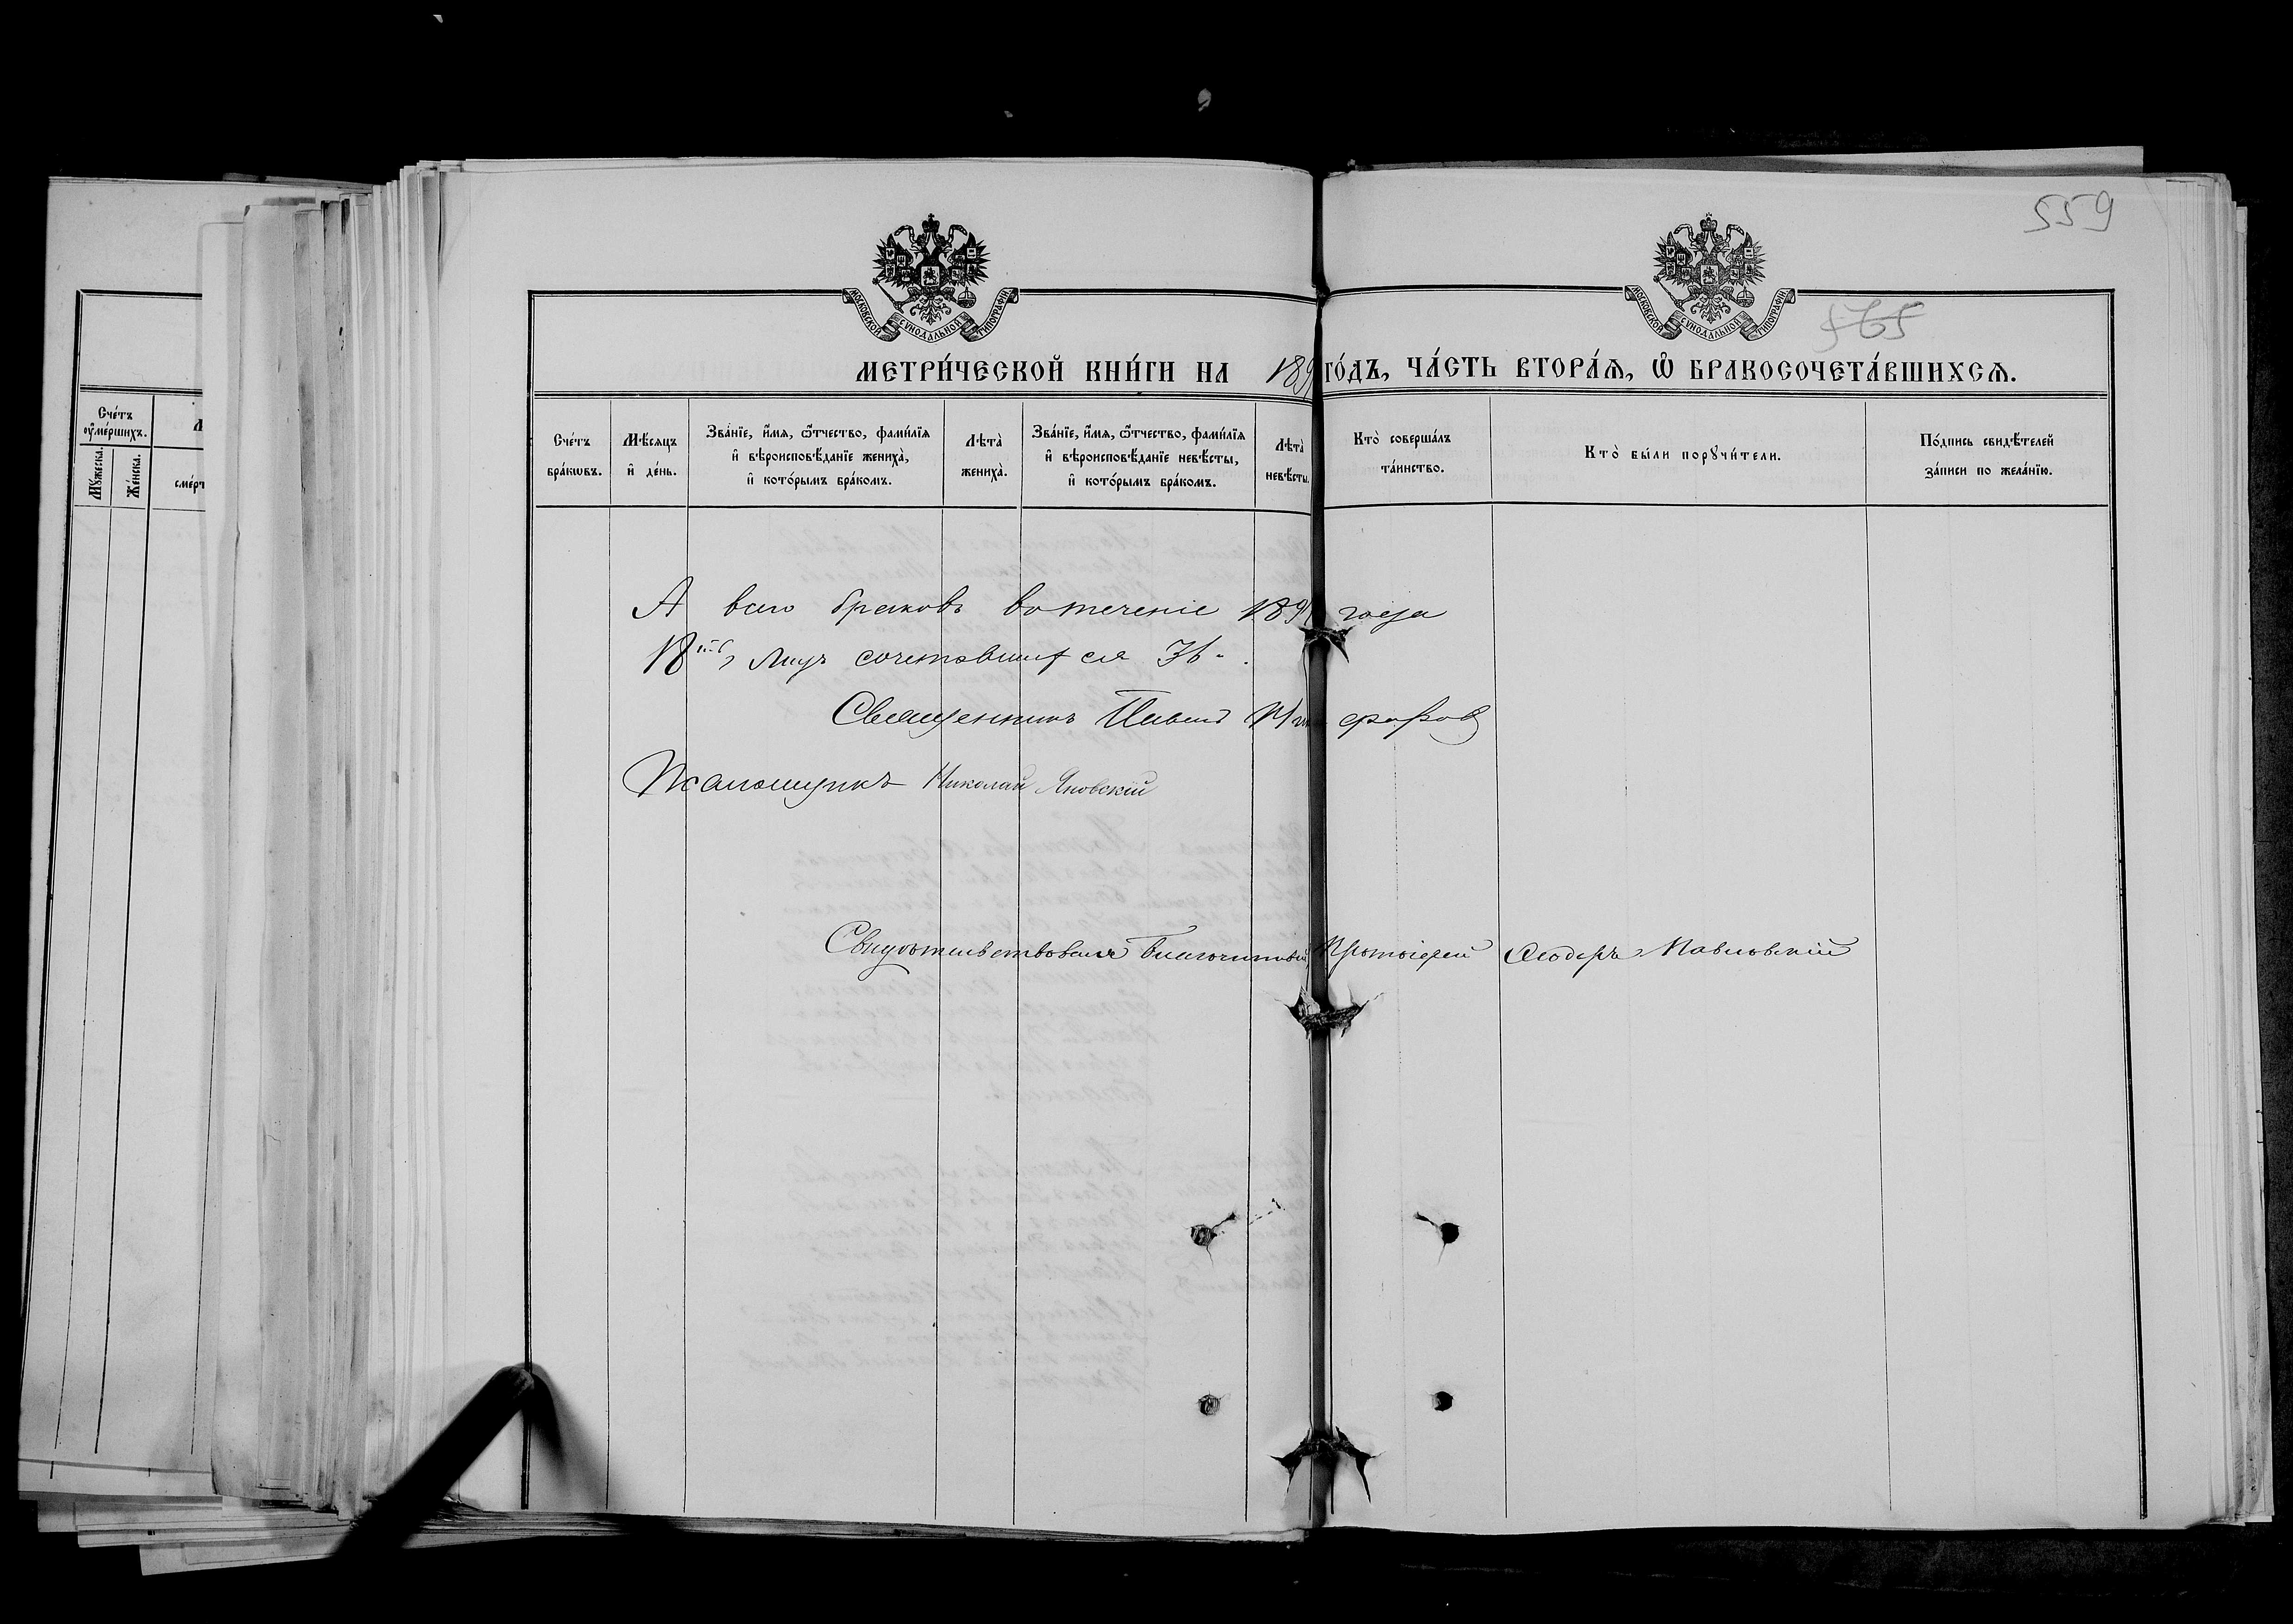 559
565
МОСКОВСКОЙ СУНОДАЛЬНОЙ ТИПОГРАФІИ
МОСКОВСКОЙ СУНОДАЛЬНОЙ ТИПОГРАФІИ
МЕТРИ́ЧЕСКОЙ КНИ́ГИ НА 189 ГО́ДЪ, ЧА́СТЬ ВТОРА́Ѧ, Ѡ҆ БРАКОСОЧЕТА́ВШИХСѦ.
Сче́тъ ᲂу҆ме́ршихъ.
Мꙋ́жеска.
Же́нска.
Сче́тъ бра́кωвъ.
Мѣ́сяцъ и҆ де́нь.
Зва́нїе, и҆́мѧ, ѻ҆́тчество, фами́лїѧ и҆ вѣроисповѣ́данїе жениха̀, и҆ кото́рымъ бра́комъ.
Лѣта̀ жениха̀.
Зва́нїе, и҆́мѧ, ѻ҆́тчество, фами́лїѧ и҆ вѣроисповѣ́данїе невѣ́сты, и҆ кото́рымъ бра́комъ.
Лѣта̀ невѣ́сты.
Кто̀ соверша́лъ та́инство.
Кто̀ бы́ли порꙋчи́тели.
По́дпись свидѣ́телей за́писи по жела́нїю.
А всего браковъ въ теченіе 189 года
18, лицъ сочетавшихся 36.
Священникъ Павелъ
Псаломщикъ Николай Яновскій
Свидѣтельствовалъ Благочинный, Протоіерей Ѳеодоръ Павловскій